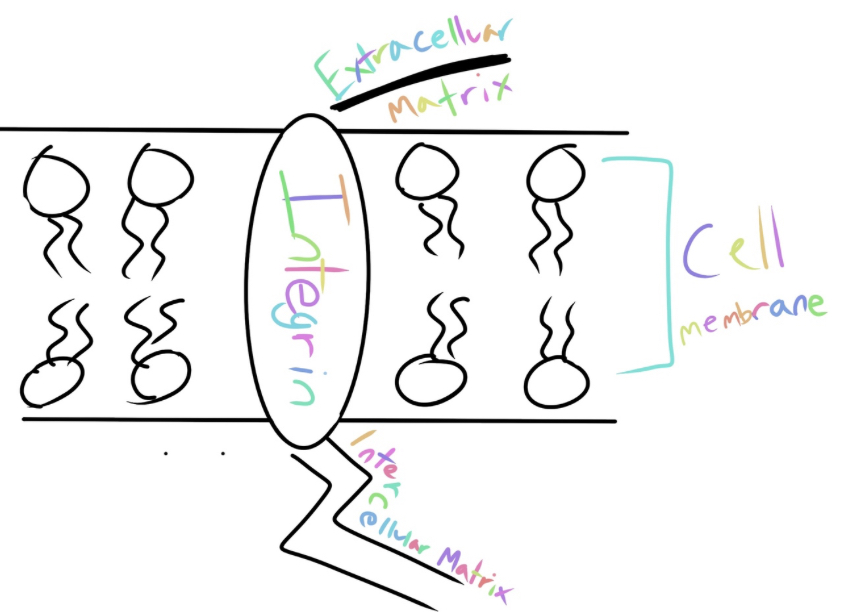 Extracelluar
Matrix
Integrin
Cell
membrane
Intercellular Matrix